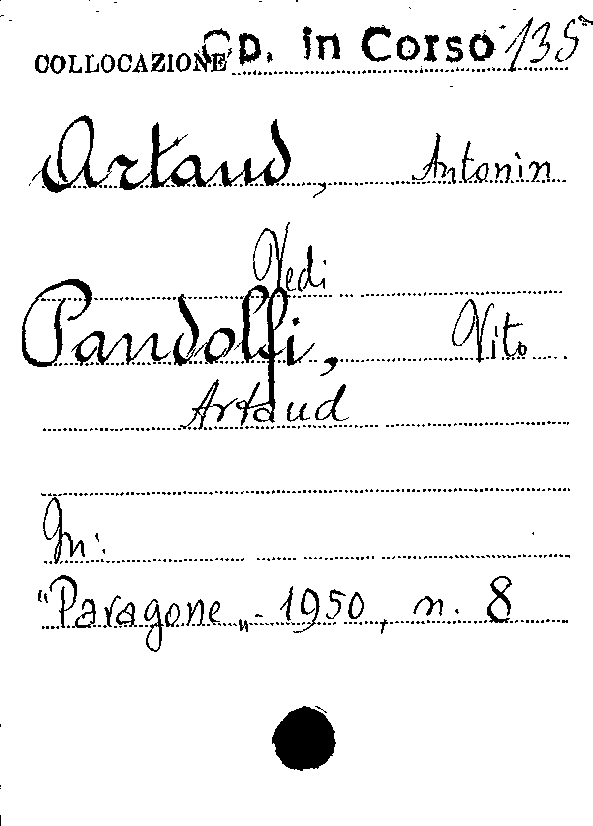 COLLOCAZIONE CD. in Corso 135
Artaud, Antonin
Vedi
Pandolfi, Vito
Artaud
In:
"Paragone„ - 1950, n. 8